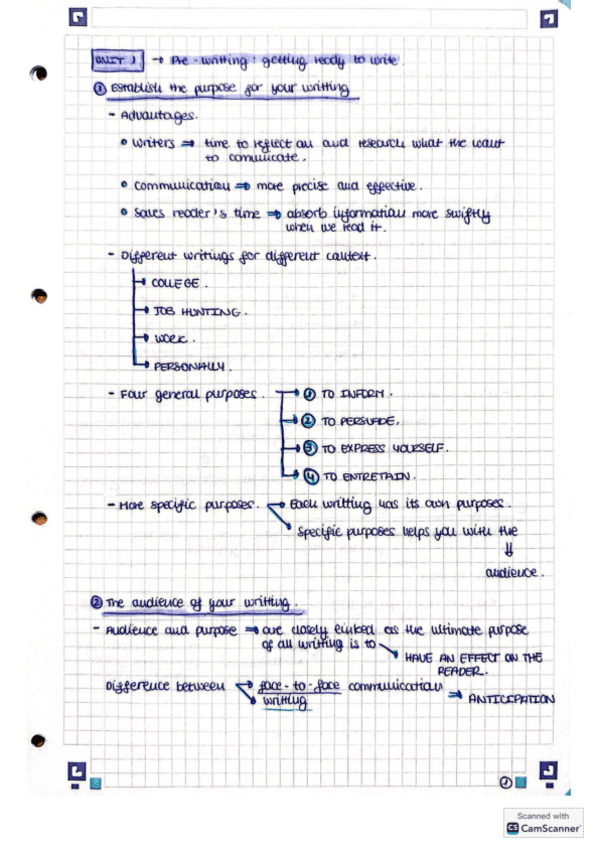 UNIT 1 → Pre-writting: getting ready to write.
① Establish the purpose for your writting
- Advautages.
• Writers ⇒ time to reflect on and research what the want
to comunicate.
• Communication ⇒ more precise and effective.
• Saves reader's time ⇒ absorb information more swiftly
when we read it.
- Different writings for different context.
→ COLLEGE.
→ JOB HUNTING.
→ WORK.
→ PERSONALLY.
- Four general purposes. → ① TO INFORM.
→ ② TO PERSUADE.
→ ③ TO EXPRESS YOURSELF.
→ ④ TO ENTRETAIN.
- More specific purposes. → Each writting has its own purposes.
→ Specific purposes helps you with the
⇓
audience.
② The audience of your writting.
- Audience and purpose ⇒ are closely linked as the ultimate purpose
of all writting is to → HAVE AN EFFECT ON THE
READER.
Difference between → face-to-face communication ⇒ ANTICIPATION
→ writting
①
Scanned with
CS CamScanner